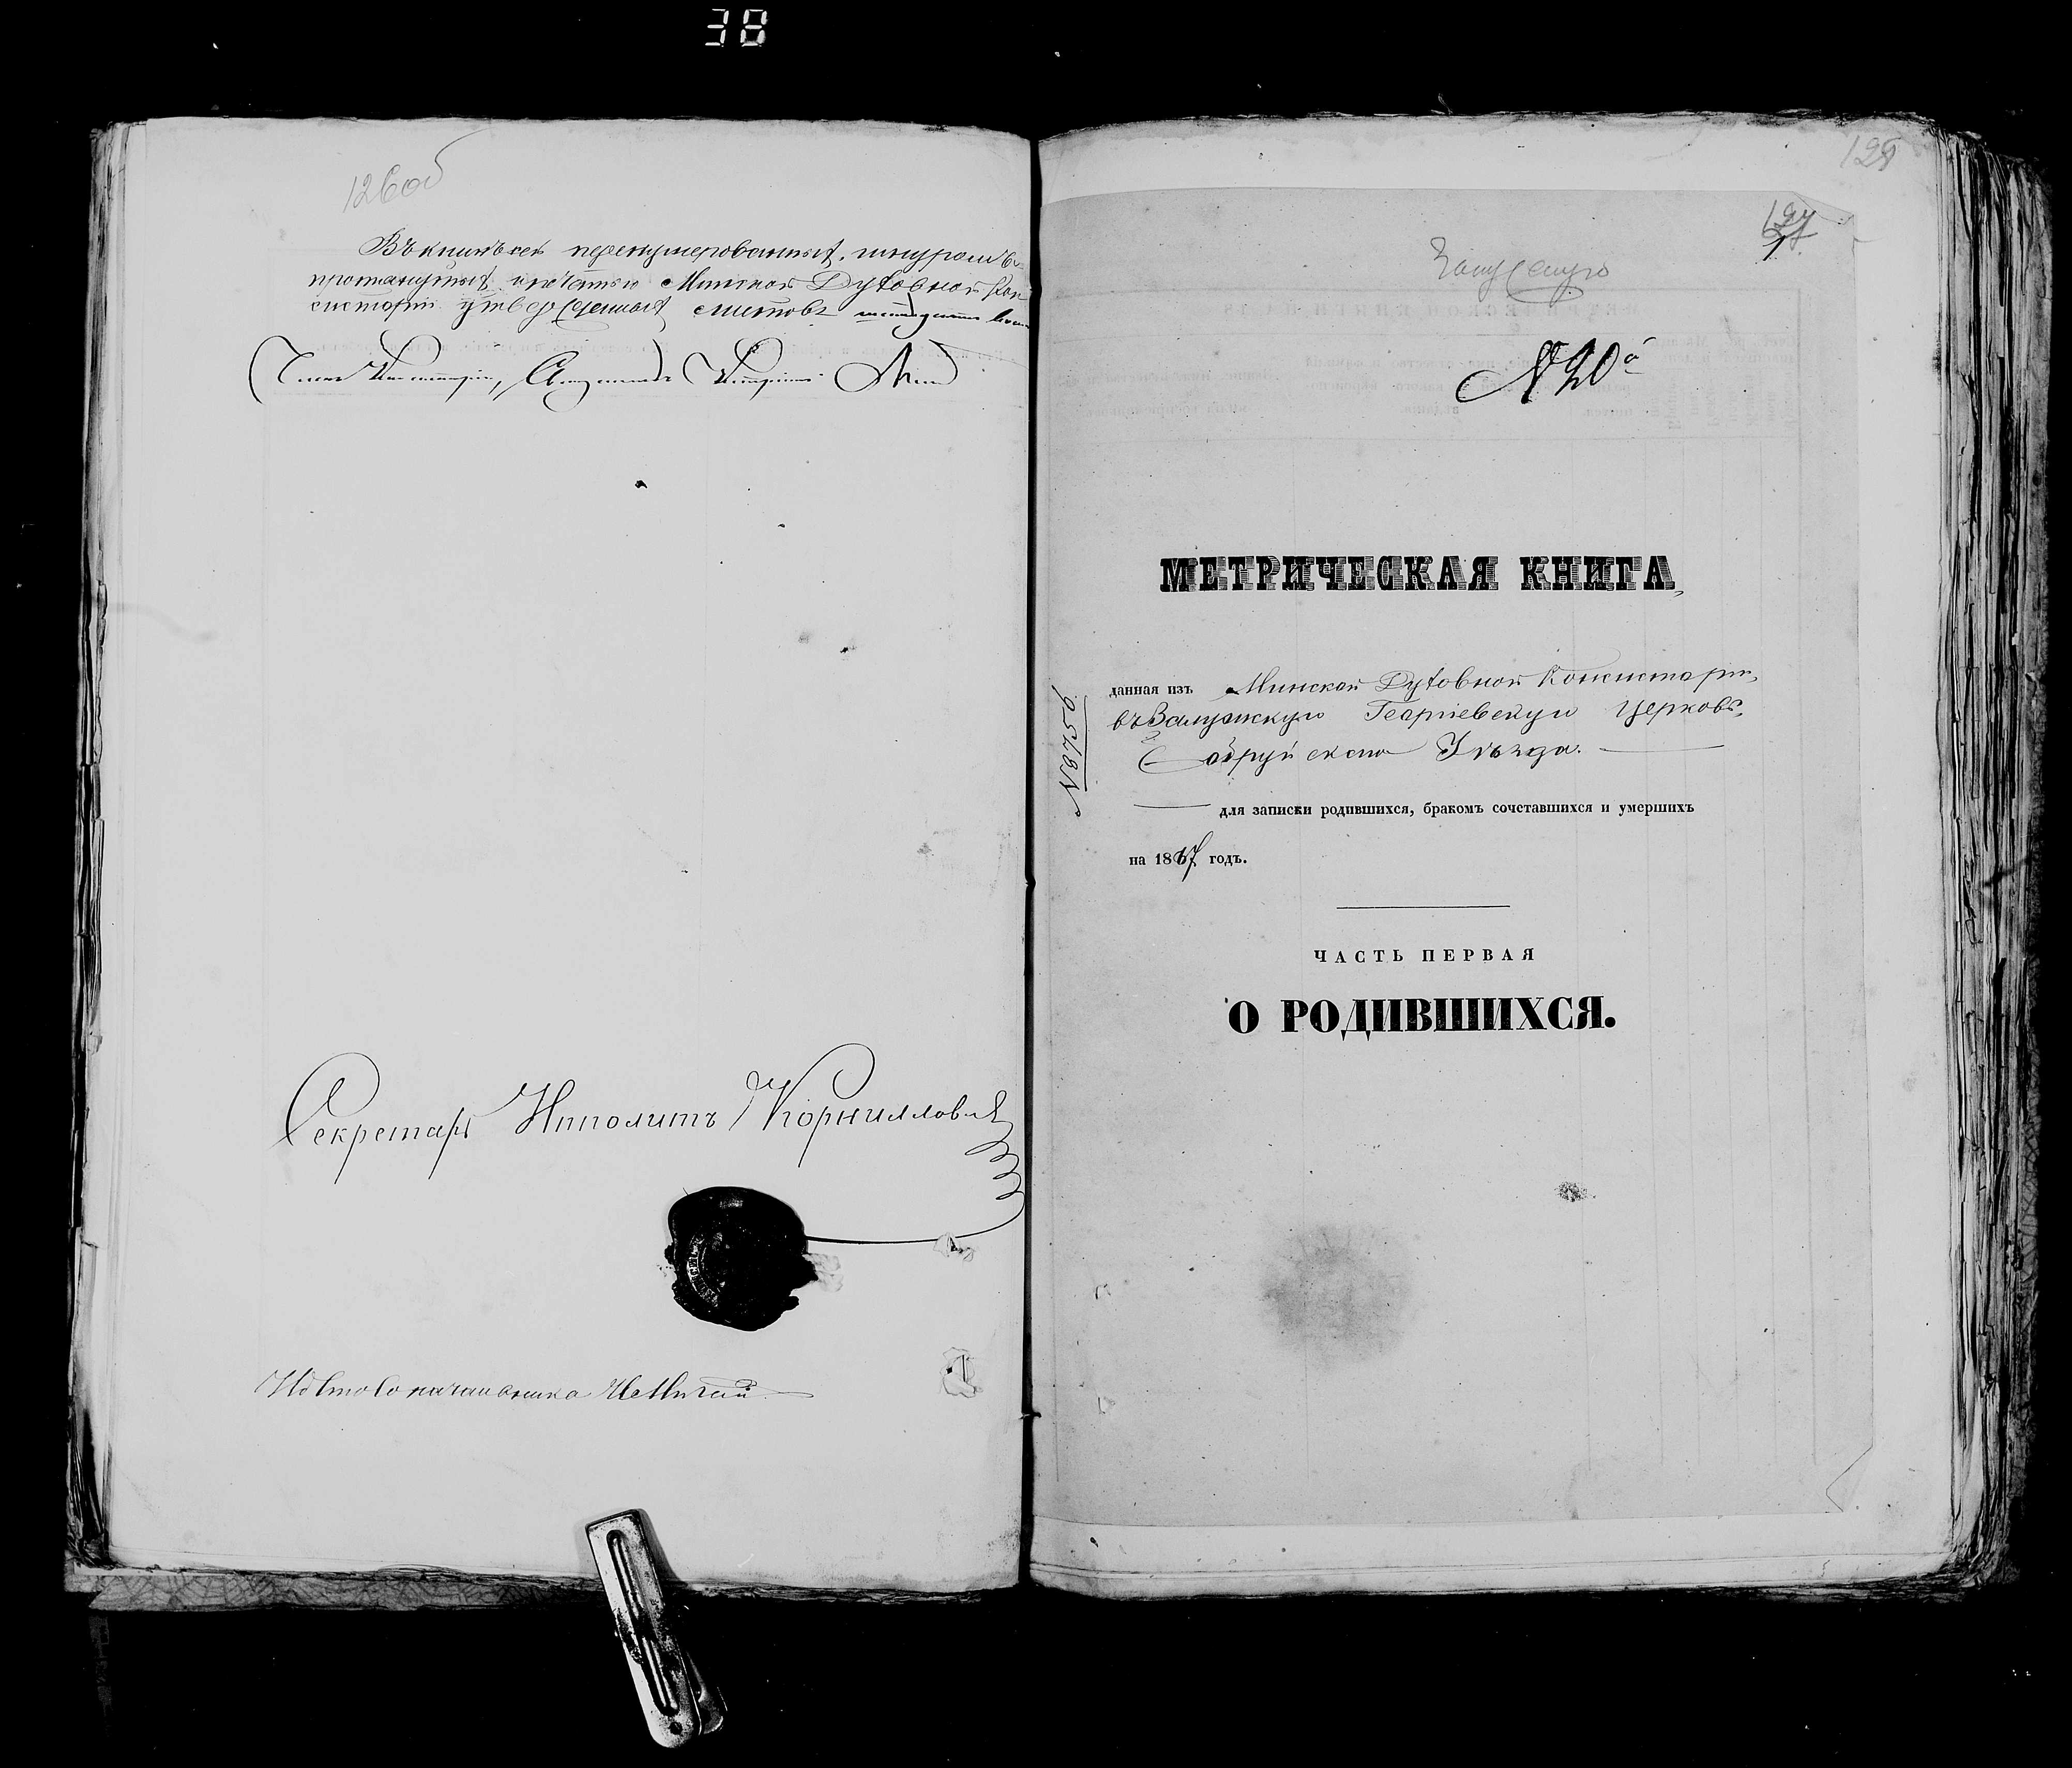 38
126об
Въ книгѣ сей перенумерованныхъ, шнуромъ
протянутыхъ и печатью Минской Духовной Кон
систоріи утвержденныхъ листовъ
Членъ Консисторіи,
Секретарь Ипполитъ Корнилловичъ
128
127
1
№ 20й
МЕТРИЧЕСКАЯ КНИГА,
данная изъ Минской Духовной Консисторіи
въ Залужскую Георгіевскую Церковь,
Бобруйскаго Уѣзда.
№ 8759
для записки родившихся, бракомъ сочетавшихся и умершихъ
на 1867 годъ.
ЧАСТЬ ПЕРВАЯ
О РОДИВШИХСЯ.